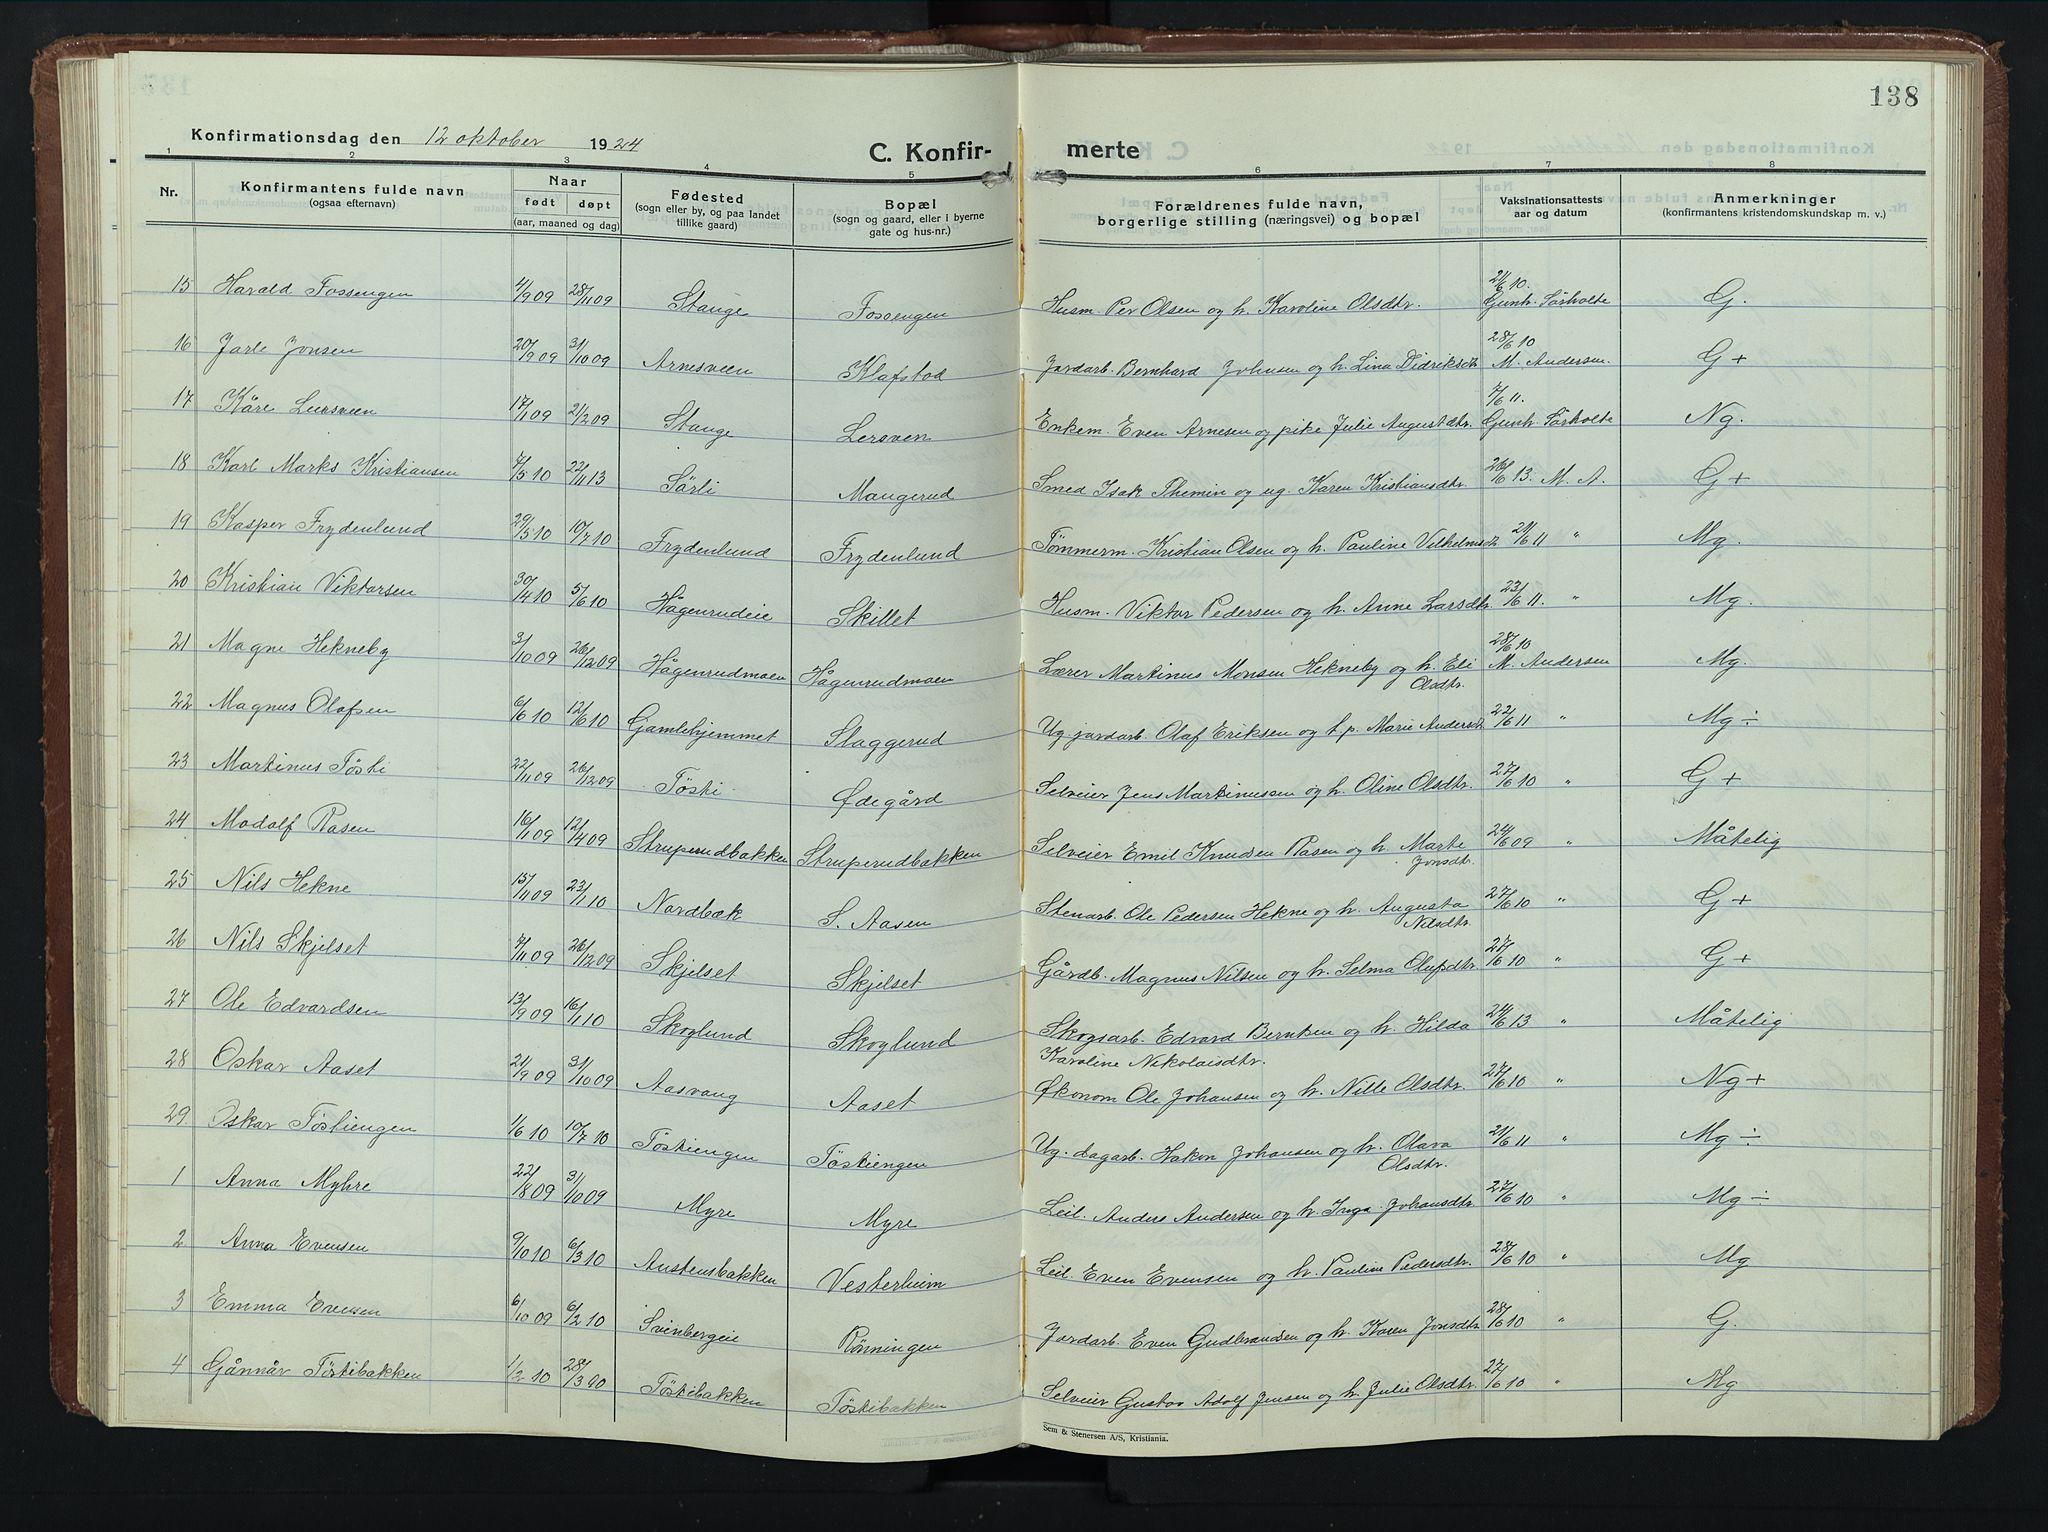 138
Konfirmationsdag den 12 oktober 1924
C. Konfirmerte
1 2 3 4 5 6 7 8
Nr. Konfirmantens fulde navn (ogsaa efternavn) Naar født døpt (aar, maaned og dag) Fødested (sogn eller by, og paa landet tillike gaard) Bopæl (sogn og gaard, eller i byerne gate og hus-nr.) Forældrenes fulde navn, borgerlige stilling (næringsvei) og bopæl Vaksinationsattests aar og datum Anmerkninger (konfirmantens kristendomskundskap m. v.)
15 Harald Fossengen 4/9 09 28/11 09 Stange Fossengen Husm. Per Olsen og h. Karoline Olsdtr. 21/6 10. Gunh. Sørholte G.
16 Jarle Jonsen 20/9 09 31/10 09 Arnesveen Klafstad Jordarb. Bernhard Johnsen og h. Lina Didriksdtr. 28/6 10 M. Andersen. G +
17 Kåre Lersveen 17/1 09 21/2 09 Stange Lersven Enkem. Even Arnesen og pike Julie Augustdtr. 7/6 11. Gunh. Sørholte Ng.
18 Karl Marks Kristiansen 7/5 10 22/11 13 Sørli Mangerud Smed Isak Themin og ug. Karen Kristiansdtr. 26/6 13. M. A. G +
19 Kasper Frydenlund 29/5 10 10/7 10 Frydenlund Frydenlund Tømmerm. Kristian Olsen og h. Pauline Vilhelmsdtr. 21/6 11 " Mg.
20 Kristian Viktorsen 30/4 10 5/6 10 Hågenrudeie Skillet Husm. Viktor Pedersen og h. Anne Larsdtr. 23/6 11. " Mg.
21 Magne Hekneby 3/10 09 26/12 09 Hågenrudmoen Hågenrudmoen Lærer Martinus Monsen Hekneby og h. Eli Olsdtr. 28/6 10 M. Andersen Mg.
22 Magnus Olafsen 6/6 10 12/6 10 Gamlehjemmet Slaggerud Ug. jordarb. Olaf Eriksen og t. p. Marie Andersdtr. 22/6 11 " Mg ÷
23 Martinus Tøsti 22/11 09 26/12 09 Tøsti Ødegård Selveier Jens Martinussen og h. Oline Olsdtr. 27/6 10 " G +
24 Modolf Rasen 16/1 09 12/4 09 Struperudbakken Struperudbakken Selveier Emil Knudsen Rasen og h. Marte Jonsdtr. 24/6 09 " Måtelig
25 Nils Hekne 15/11 09 23/1 10 Nordbæk S. Aasen Stenarb. Ole Pedersen Hekne og h. Augusta Nilsdtr. 27/6 10 " G +
26 Nils Skjelset 7/11 09 26/12 09 Skjelset Skjelset Gårdb. Magnus Nilsen og h. Selma Olufsdtr. 27/6 10 " G +
27 Ole Edvardsen 13/9 09 16/1 10 Skoglund Skoglund Skogsarb. Edvard Berntsen og h. Hilda Karoline Nikolaisdtr. 24/6 13 " Måtelig
28 Oskar Aaset 21/9 09 31/10 09 Aasvang Aaset Økonom Ole Johansen og h. Nille Olsdtr. 27/6 10 " Ng +
29. Oskar Tøstiengen 1/6 10 10/7 10 Tøstiengen Tøstiengen Ug. dagarb. Hakon Johansen og h. Olava Olsdtr. 21/6 11 " Mg ÷
1 Anna Myhre 22/8 09 31/10 09 Myre Myre Leil. Anders Andersen og h. Inga Johansdtr. 27/6 10 " Mg ÷
2 Anna Evensen 9/10 10 6/3 10 Austensbakken Vesterheim Leil. Even Evensen og h. Pauline Pedersdtr. 28/6 10 " Mg
3 Emma Evensen 6/10 09 6/2 10 Svenbergeie Rønningen Jordarb. Even Gudbrandsen og h. Karen Jonsdtr. 28/6 10 " G.
4 Gånnår Tøstibakken 1/2 10 28/3 00 Tøstibakken Tøstibakken Selveier Gustav Adolf Jensen og h. Julie Olsdtr. 27/6 10 " Mg
Sem & Stenersen A/S, Kristiania.